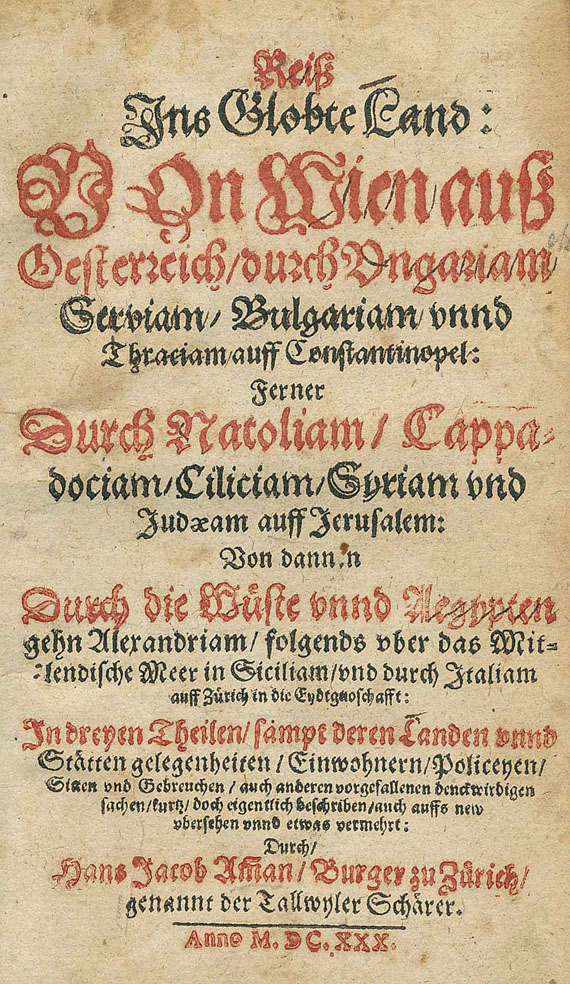 Reiß
Ins Globte Land:
VOn Wien auß
Oesterreich/durch Vngariam
Serviam/ Bulgariam vnnd
Thraciam/auff Constantinopel:
Ferner
Durch Natoliam/ Cappa-
dociam/Ciliciam/Syriam vnd
Judæam auff Jerusalem:
Von dann.n
Durch die Wüste vnnd Aegypten
gehn Alexandriam/ folgends vber das Mit-
lendische Meer in Siciliam/vnd durch Italiam
auff Zürich in die Eydtgnoschafft:
In dreyen Theilen/ sampt deren Landen vnnd
Stätten gelegenheiten/ Einwohnern/Policeyen/
Sitten vnd Gebreuchen/ auch anderen vorgefallenen denckwirdigen
sachen/kurtz/ doch eigentlich beschriben/auch auffs new
vbersehen vnnd etwas vermehrt:
Durch/
Hans Jacob Am̃an/ Burger zu Zürich/
genannt der Tallwyler Schärer.
Anno M. DC. XXX.